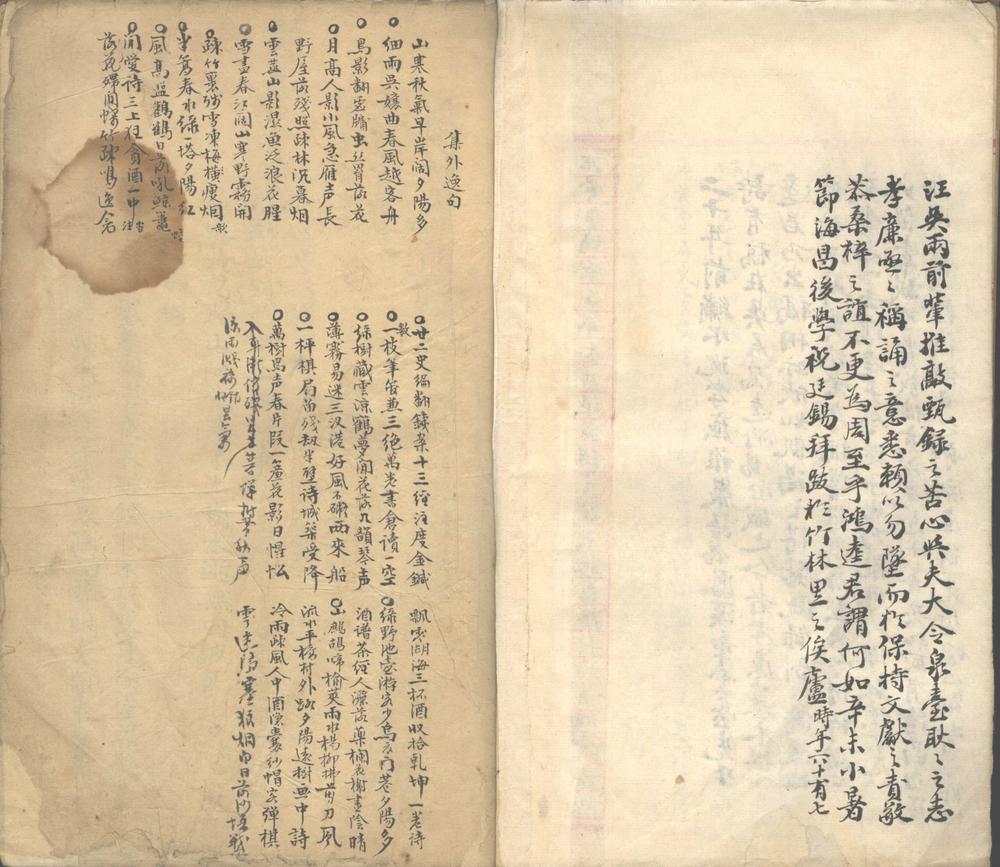 汪吳兩前輩推敲甄錄之苦心與夫大令泉臺耿々之志
孝廉亟々稱誦之意悉賴以勿墜而於保持文獻之責敬
恭桑梓之誼不更為周至乎鴻逵君謂何如辛未小暑
節海昌後學祝廷錫拜跋於竹林里之俟廬時年六十有七
集外逸句
山寒秋氣早岸闊夕陽多
細雨吳孃曲春風越客舟
鳥影翻虛牖虫絲罥落花
月高人影小風急雁声長
野屋落殘照疎林沉暮烟
雲蒸山影濕魚泛浪花腥
雪盡春江闊山寒野霧開
疎竹裹殘雪凍梅橫瘦烟
半篙春水綠一塔夕陽紅
風高
閒愛詩三上狂貪酒一中
廿二史編翻鐵案十三經注度金鍼
一枝筆管兼三絕萬卷書倉讀一空
綠樹藏雲涼鶴夢閒花落几韻琴声
薄霧易迷三汊港好風不礙兩來船
一枰棋局留殘劫半壁詩城築受降
萬樹鳥声春片段一簾花影日惺忪
飄零湖海三杯酒收拾乾坤一卷詩
綠野池臺游客少烏衣門巷夕陽多
酒譜茶經人澹蕩藥欄花榭晝陰晴
山鷓鴣啼榆莢雨水楊柳拂剪刀風
流水平橋村外路夕陽遠樹畫中詩
冷雨疎風人中酒隱囊紗帽客彈棋